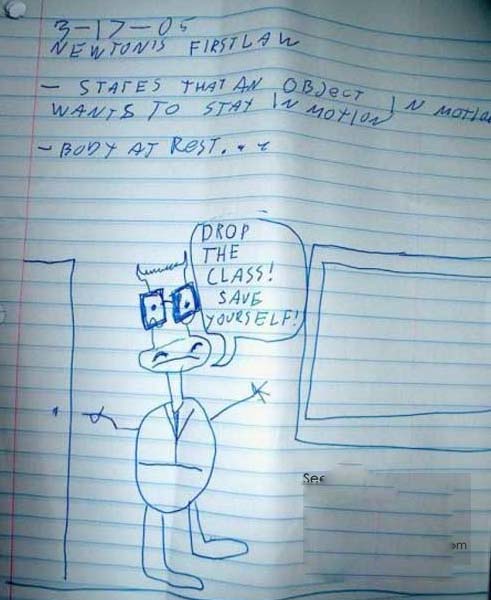 3-17-05
NEWTON'S FIRST LAW
- STATES THAT AN OBJECT IN MOTION
WANTS TO STAY IN MOTION
- BODY AT REST. . .
DROP
THE
CLASS!
SAVE
YOURSELF!
See
om